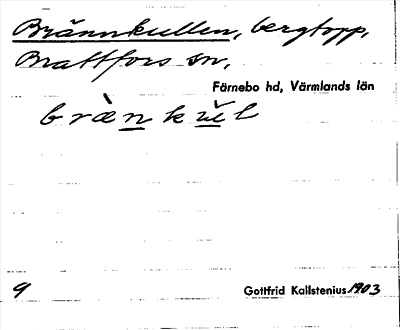 Brännkullen, bergtopp,
Brattfors sn,
Färnebo hd, Värmlands län
bränkul
9 Gottfrid Kallstenius 1903